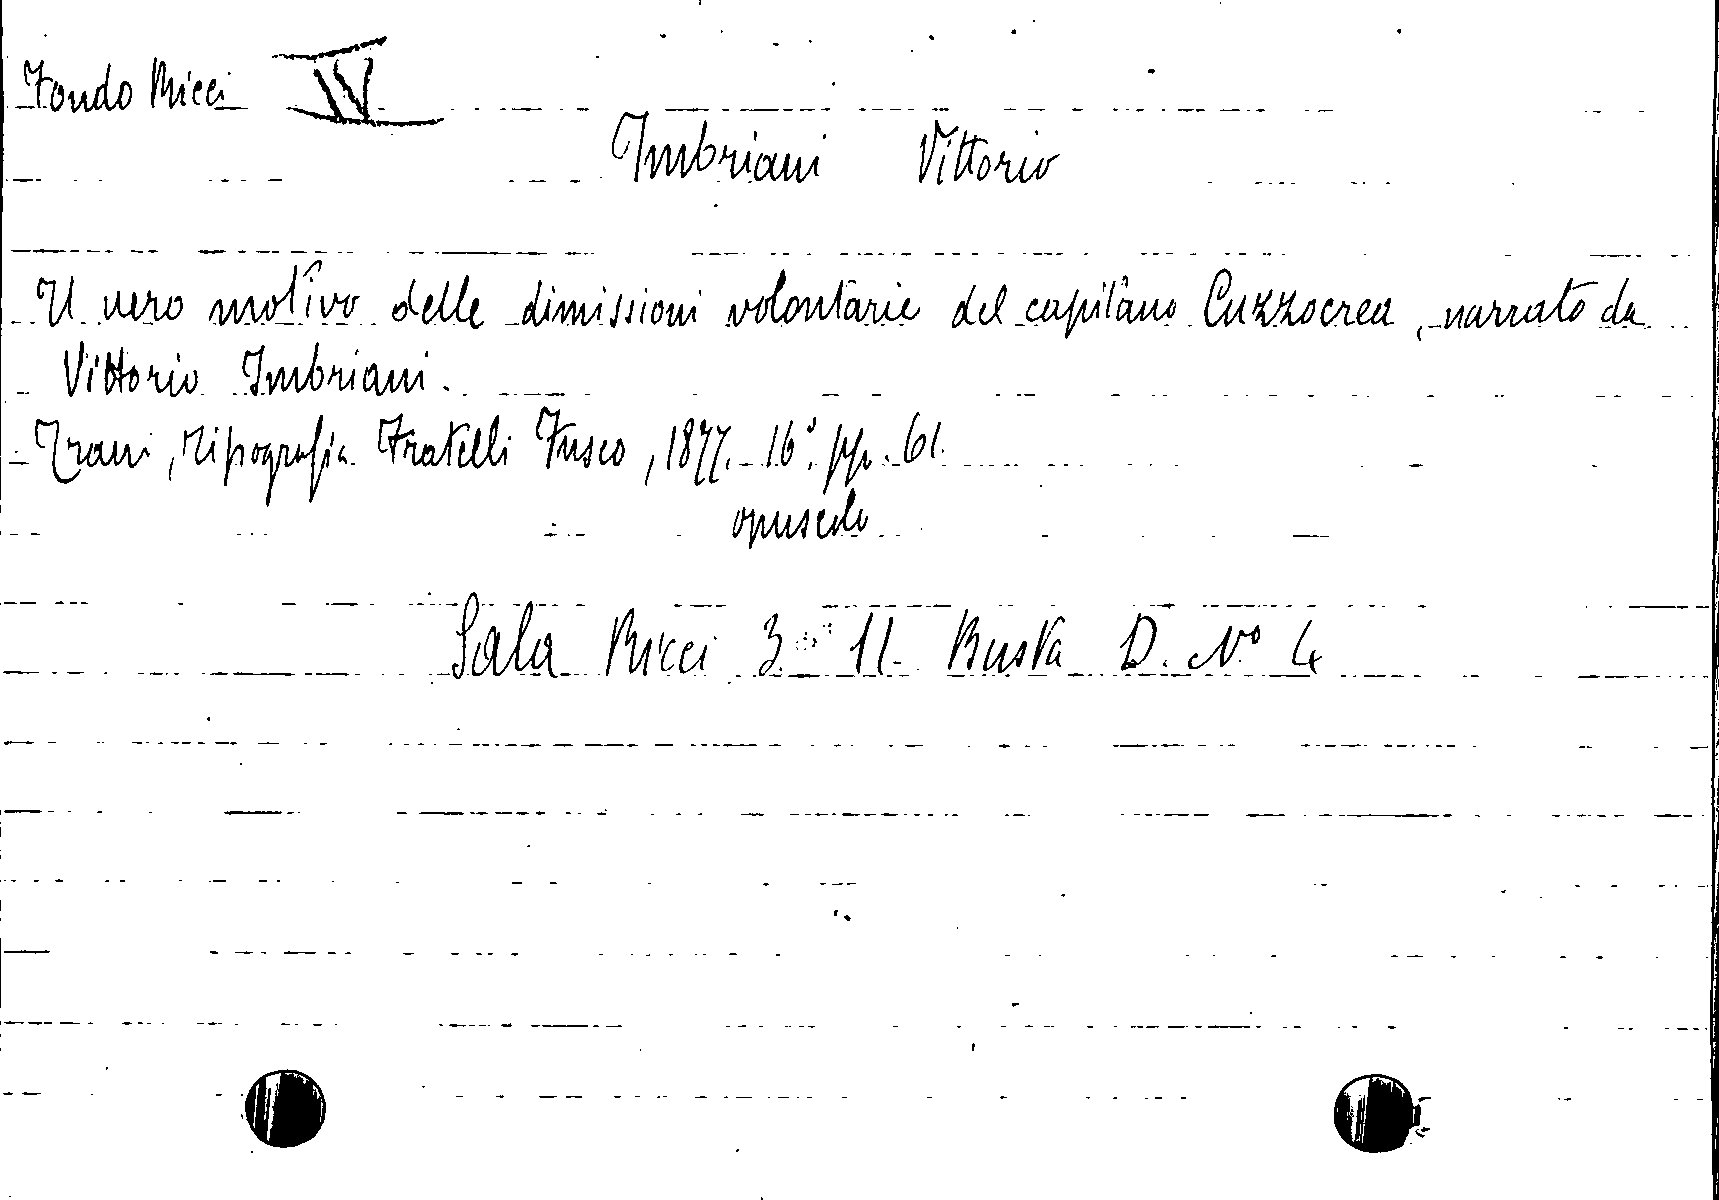 Fondo Ricci IV
Imbriani Vittorio
Il vero motivo delle dimissioni volontarie del capitano Cuzzocrea, narrato da
Vittorio Imbriani.
Trani, Tipografia Fratelli Fusco, 1877. 16º. pp. 61.
opuscolo
Sala Ricci 3 11. Busta D. Nº 4